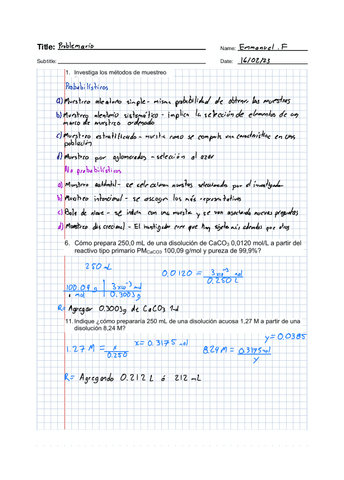 Title: Problemario
Name: Emmanuel .F
Subtitle:
Date: 16/02/23
1. Investiga los métodos de muestreo
Probabilísticos
a) Muestreo aleatorio simple - misma probabilidad de obtener las muestras
b) Muestreo aleatorio sistemático - implica la selección de elementos de un
marco de muestreo ordenado
c) Muestreo estratificado - muestra como se comporta una característica en una
población
d) Muestreo por aglomerados - selección al azar
No probabilísticos
a) Muestreo - se seleccionan muestras seleccionadas por el investigador
b) Muestreo intencional - se escogen los más representativos
c) Bola de nieve - se inicia con una muestra y se van asociando nuevas
d) Muestreo discrecional - El investigador cree que hay sujetos más adecuados que otros
6. Cómo prepara 250,0 mL de una disolución de CaCO3 0,0120 mol/L a partir del
reactivo tipo primario PMCaCO3 100,09 g/mol y pureza de 99,9%?
250 mL
0,0120 = 3x10^-3 mol / 0.250 L
100.09 g | 3x10^-3 mol
1 mol | 0.3003g
R= Agregar 0.3003g de CaCO3
11. Indique ¿cómo prepararía 250 mL de una disolución acuosa 1,27 M a partir de una
disolución 8,24 M?
y= 0.0385
1.27 M = x / 0.250
x= 0.3175 mol
8.24 M = 0.3175 mol / y
R= Agregando 0.212 L ó 212 mL